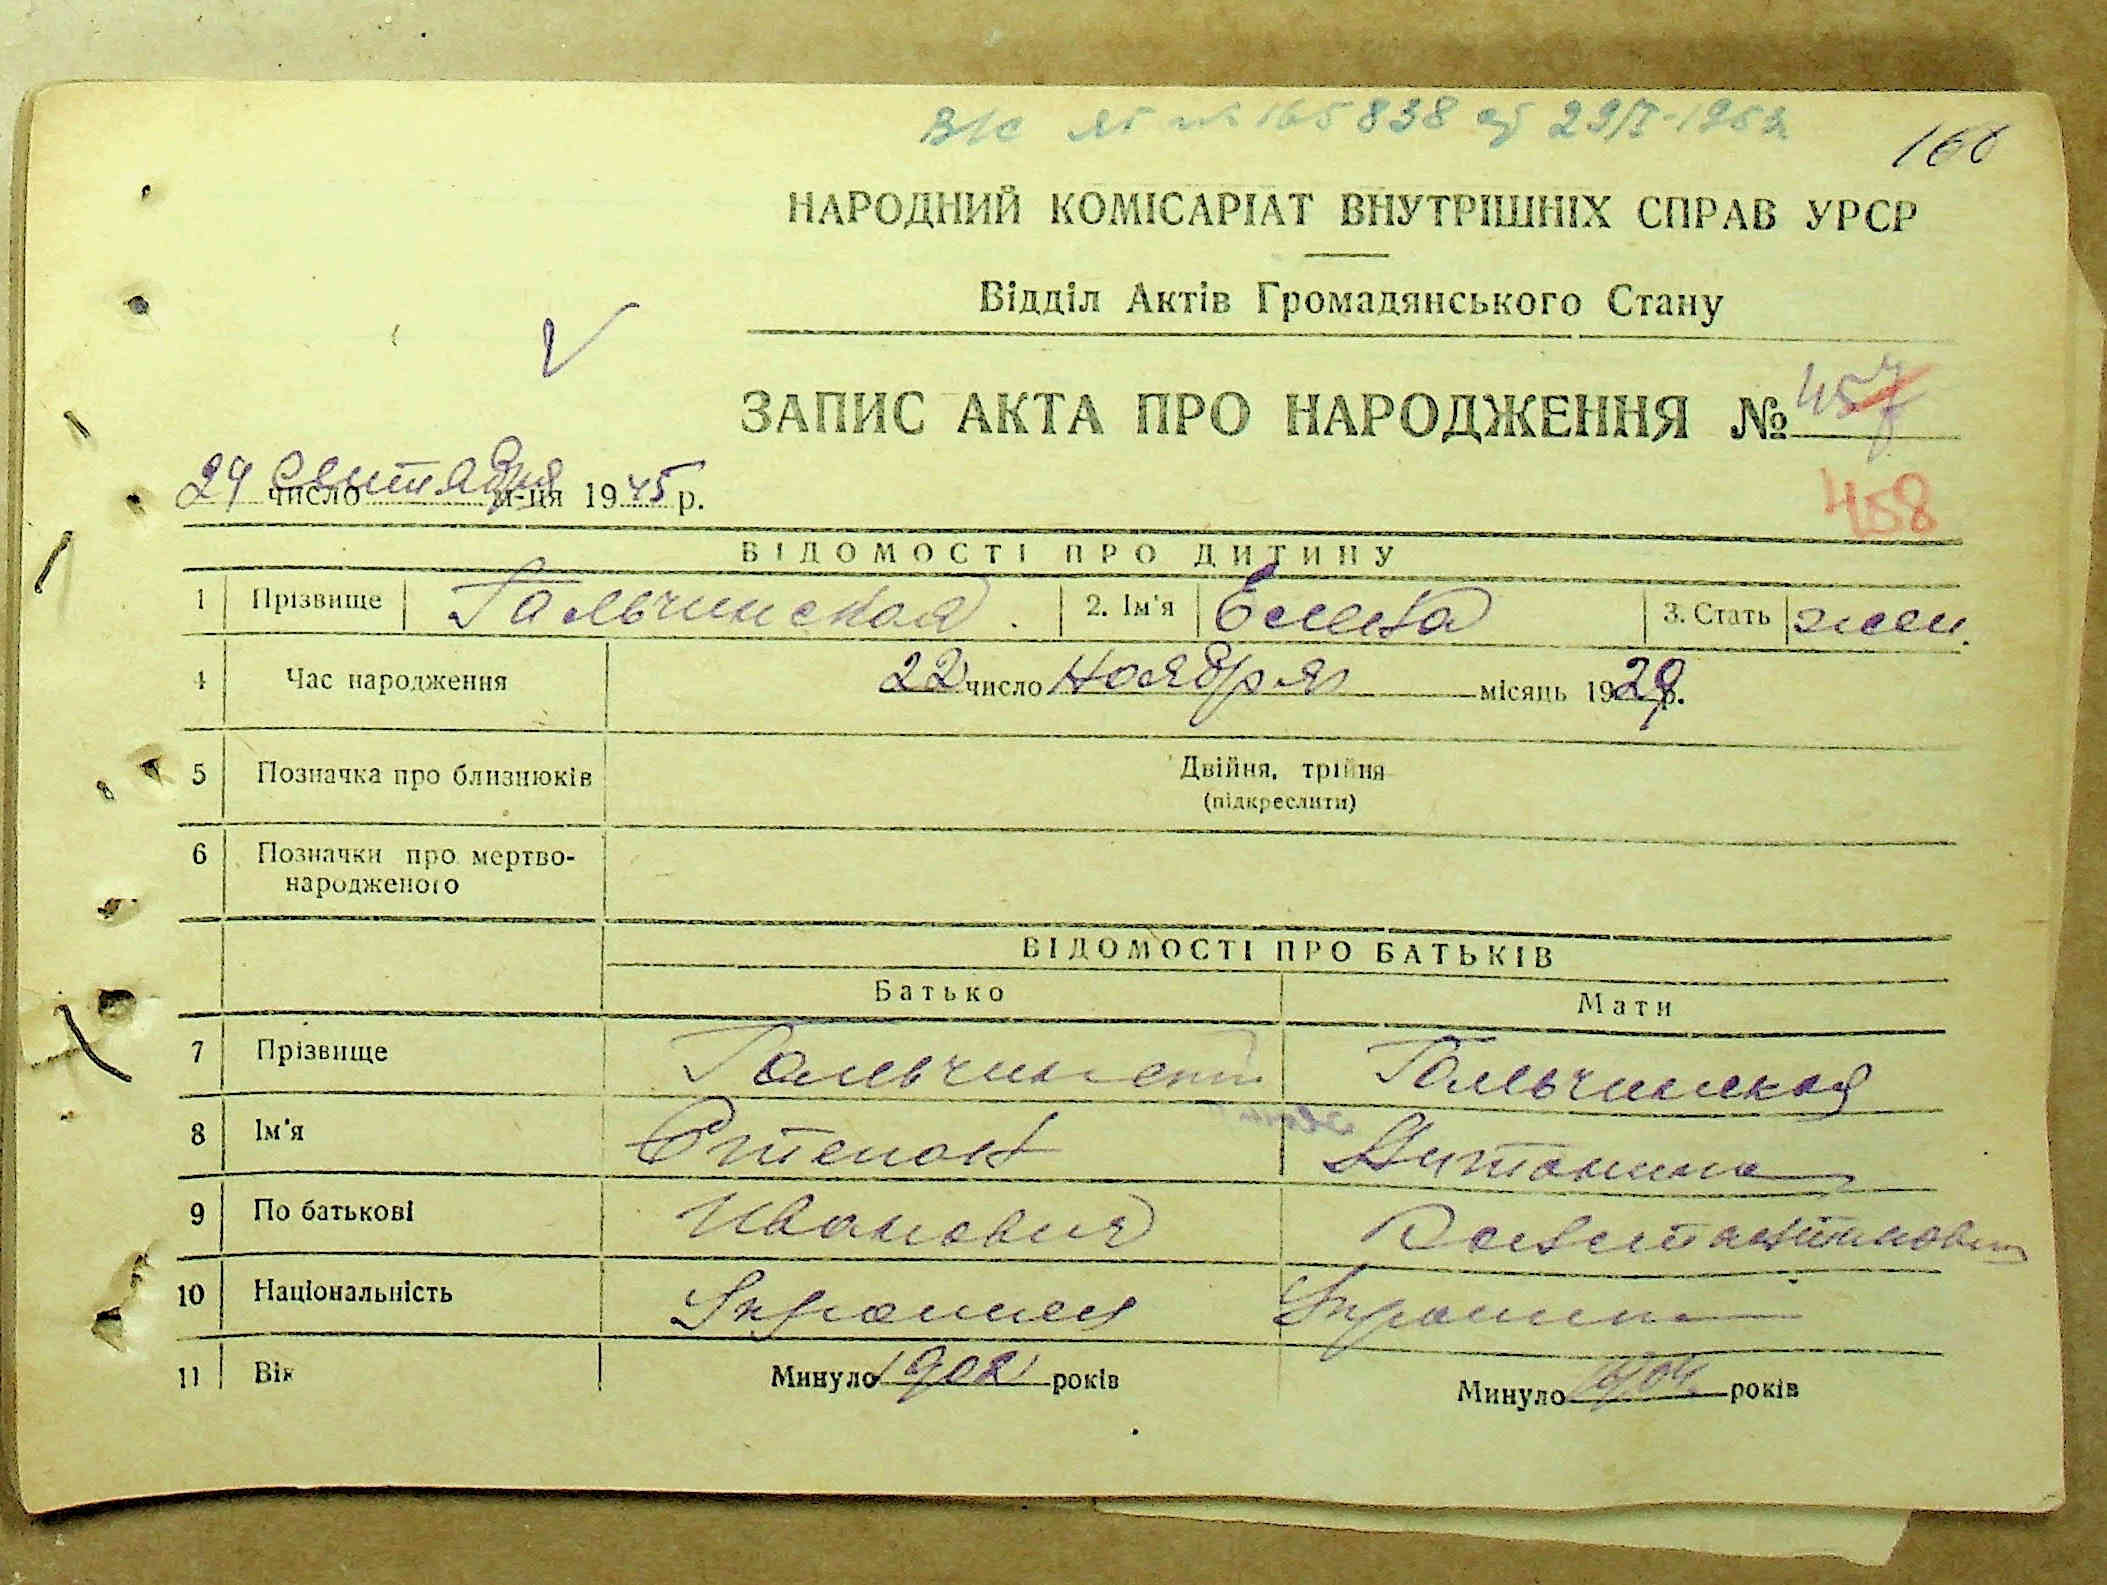 В/с ЯГ № 165838 от 29/I-195
160
НАРОДНИЙ КОМІСАРІАТ ВНУТРІШНІХ СПРАВ УРСР
Відділ Актів Громадянського Стану
ЗАПИС АКТА ПРО НАРОДЖЕННЯ № 457
458
24 число сентября м-ця 1945 р.
ВІДОМОСТІ ПРО ДИТИНУ
1 Прізвище Гальчинская. 2. Ім'я Елена 3. Стать жен.
4 Час народження 22 число Ноября місяць 1929 р.
5 Позначка про близнюків Двійня, трійня
(підкреслити)
6 Позначки про мертво-
народженого
ВІДОМОСТІ ПРО БАТЬКІВ
Батько Мати
7 Прізвище Гальчинский Гальчинская
8 Ім'я Степан Антонина
9 По батькові Иванович Константиновна
10 Національність Украинец Украинка
11 Вік Минуло 1902 років Минуло 1904 років